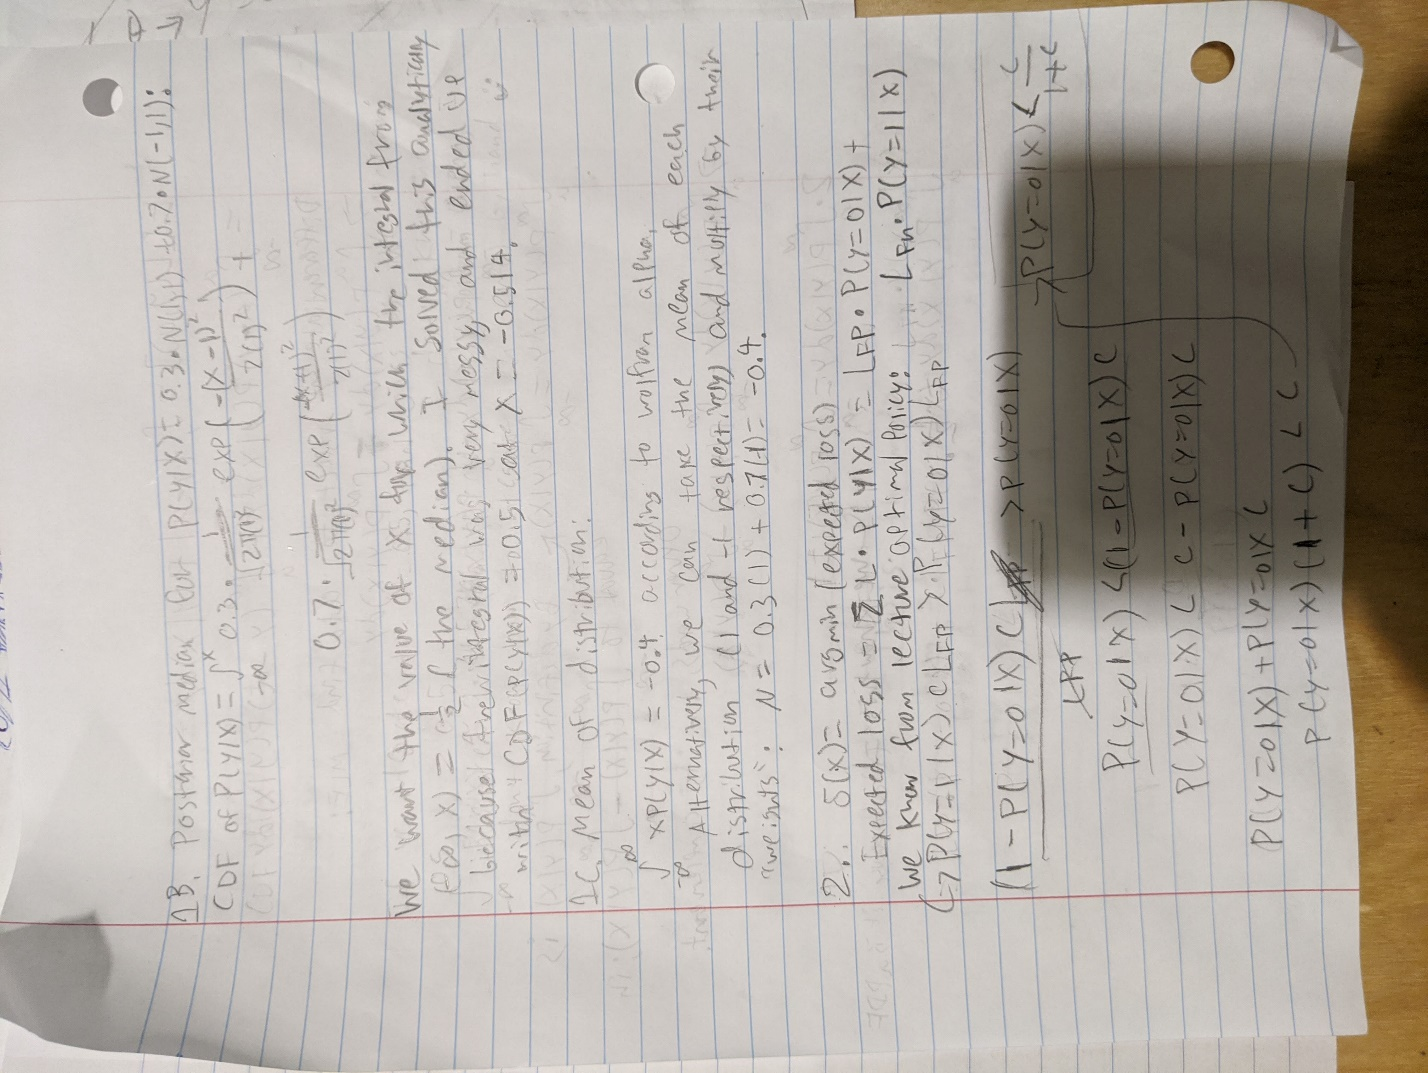 1B. Posterior median for P(Y|X) = 0.3 • N(1,1) + 0.7 • N(-1,1):
CDF of P(Y|X) = ∫_{-∞}^{x} 0.3 • 1/√(2π(1)²) exp(-(x-1)²/2(1)²) +
0.7 • 1/√(2π(1)²) exp(-(x+1)²/2(1)²)
We want the value of x for which the integral from
(-∞, x) = 1/2 (the median). I solved this analytically
because the integral was very messy, and ended up
with CDF(P(Y|X)) = 0.5 at X = -0.514.
1C. Mean of distribution:
∫_{-∞}^{∞} xP(Y|X) = -0.4 according to wolfram alpha.
Alternatively, we can take the mean of each
distribution (1 and -1 respectively) and multiply by their
"weights": M = 0.3(1) + 0.7(-1) = -0.4.
2. δ(x) = argmin (expected loss)
Expected loss = Σ L • P(Y|X) = L_FP • P(Y=0|X) +
L_FN • P(Y=1|X)
We know from lecture optimal policy:
(-> P(Y=1|X) C L_FP > P(Y=0|X) L_FP
(1 - P(Y=0|X) C L_FP / L_FP > P(Y=0|X)
P(Y=0|X) < (1 - P(Y=0|X) C
P(Y=0|X) < C - P(Y=0|X) C
P(Y=0|X) + P(Y=0|X C
P(Y=0|X) (1 + C) < C
-> P(Y=0|X) < C/1+C